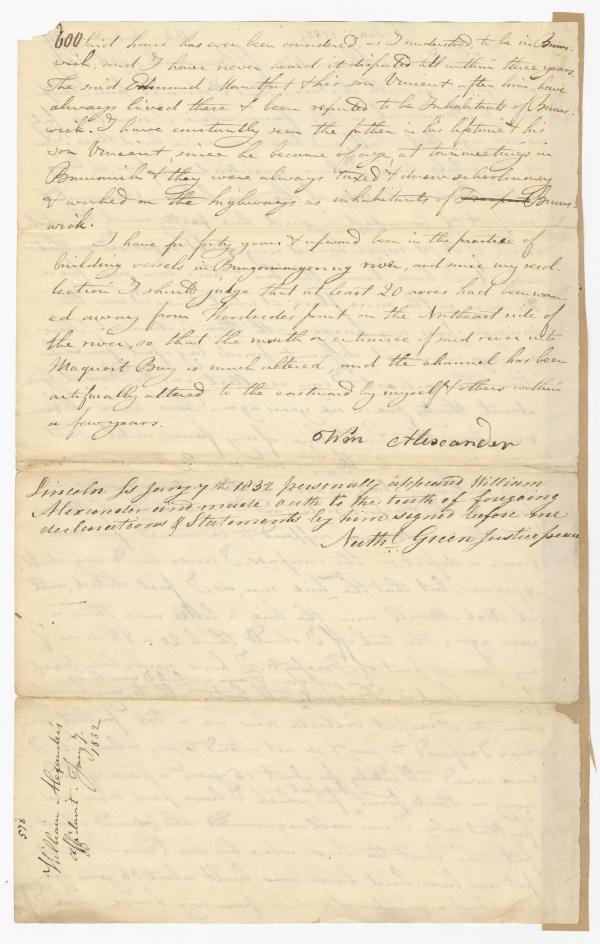 600 Said house has ever been considered, as I understood, to be in Bruns-
wick, and I have never heard it disputed till within three years.
The said Edmund Mountfort & his son Vincent after him, have
always lived there & been reputed to be Inhabitants of Bruns-
wick. I have constantly seen the father in his lifetime & his
son Vincent, since he became of age, at town meetings in
Brunswick & they were always taxed & drew school money
& worked on the highways as inhabitants of Freeport Bruns-
wick.
I have for forty years & upward been in the practice of
building vessels in Bungomungomug river, and since my recol-
lection I should judge that at least 20 acres had been wash-
ed away from Woodside's point on the Northeast side of
the river, so that the mouth or entrance of said river into
Maquoit Bay is much altered, and the channel has been
artificially altered to the eastward by myself & others within
a few years.
Wm Alexander
Lincoln Ss Jany 7th 1832 personally appeared William
Alexander and made oath to the truth of foregoing
declarations & Statements by him signed before me
Nathl. Green Justice peace
William Alexander's
affidavit. Jany 7.
1832
578